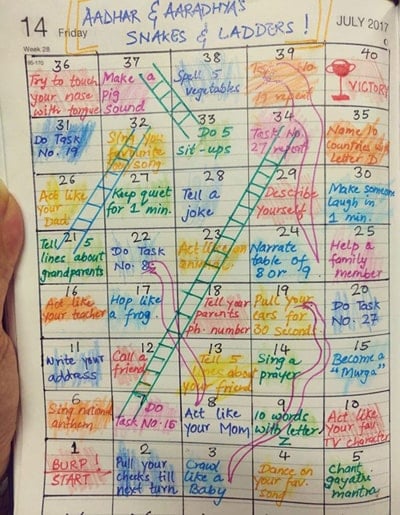 14 Friday
JULY 2017
Week 28
195-170
AADHAR & AARADHYA'S
SNAKES & LADDERS !
36
Try to touch
your nose
with tongue
37
Make a
pig
sound
38
Spell 5
vegetables
39
Task No.
repeat
40
VICTORY
31
Do Task
No. 19
32
Sing your
favourite
song
33
Do 5
sit-ups
34
Task No.
27 repeat
35
Name 10
countries with
letter D
26
Act like
your
Dad
27
Keep quiet
for 1 min.
28
Tell a
joke
29
Describe
Yourself
30
Make someone
laugh in
1 min.
21
Tell 5
lines about
grandparents
22
Do Task
No. 8
23
Act like an
animal
24
Narrate
table of
8 or 9
25
Help a
family
member
16
Act like
your teacher
17
Hop like
a frog.
18
Tell your
parents
ph. number
19
Pull your
ears for
30 seconds
20
Do Task
No. 27
11
Write your
address
12
Call a
friend
13
Tell 5
lines about
your friend
14
Sing a
prayer
15
Become a
"Murga"
6
Sing national
anthem.
7
Do
Task No. 15
8
Act like
your Mom
9
10 words
with letter
Z
10
Act like
your fav.
TV character
1
BURP !
START
2
Pull your
cheeks till
next turn
3
Crawl
like a
Baby
4
Dance on
your fav.
song
5
Chant
gayatri
mantra